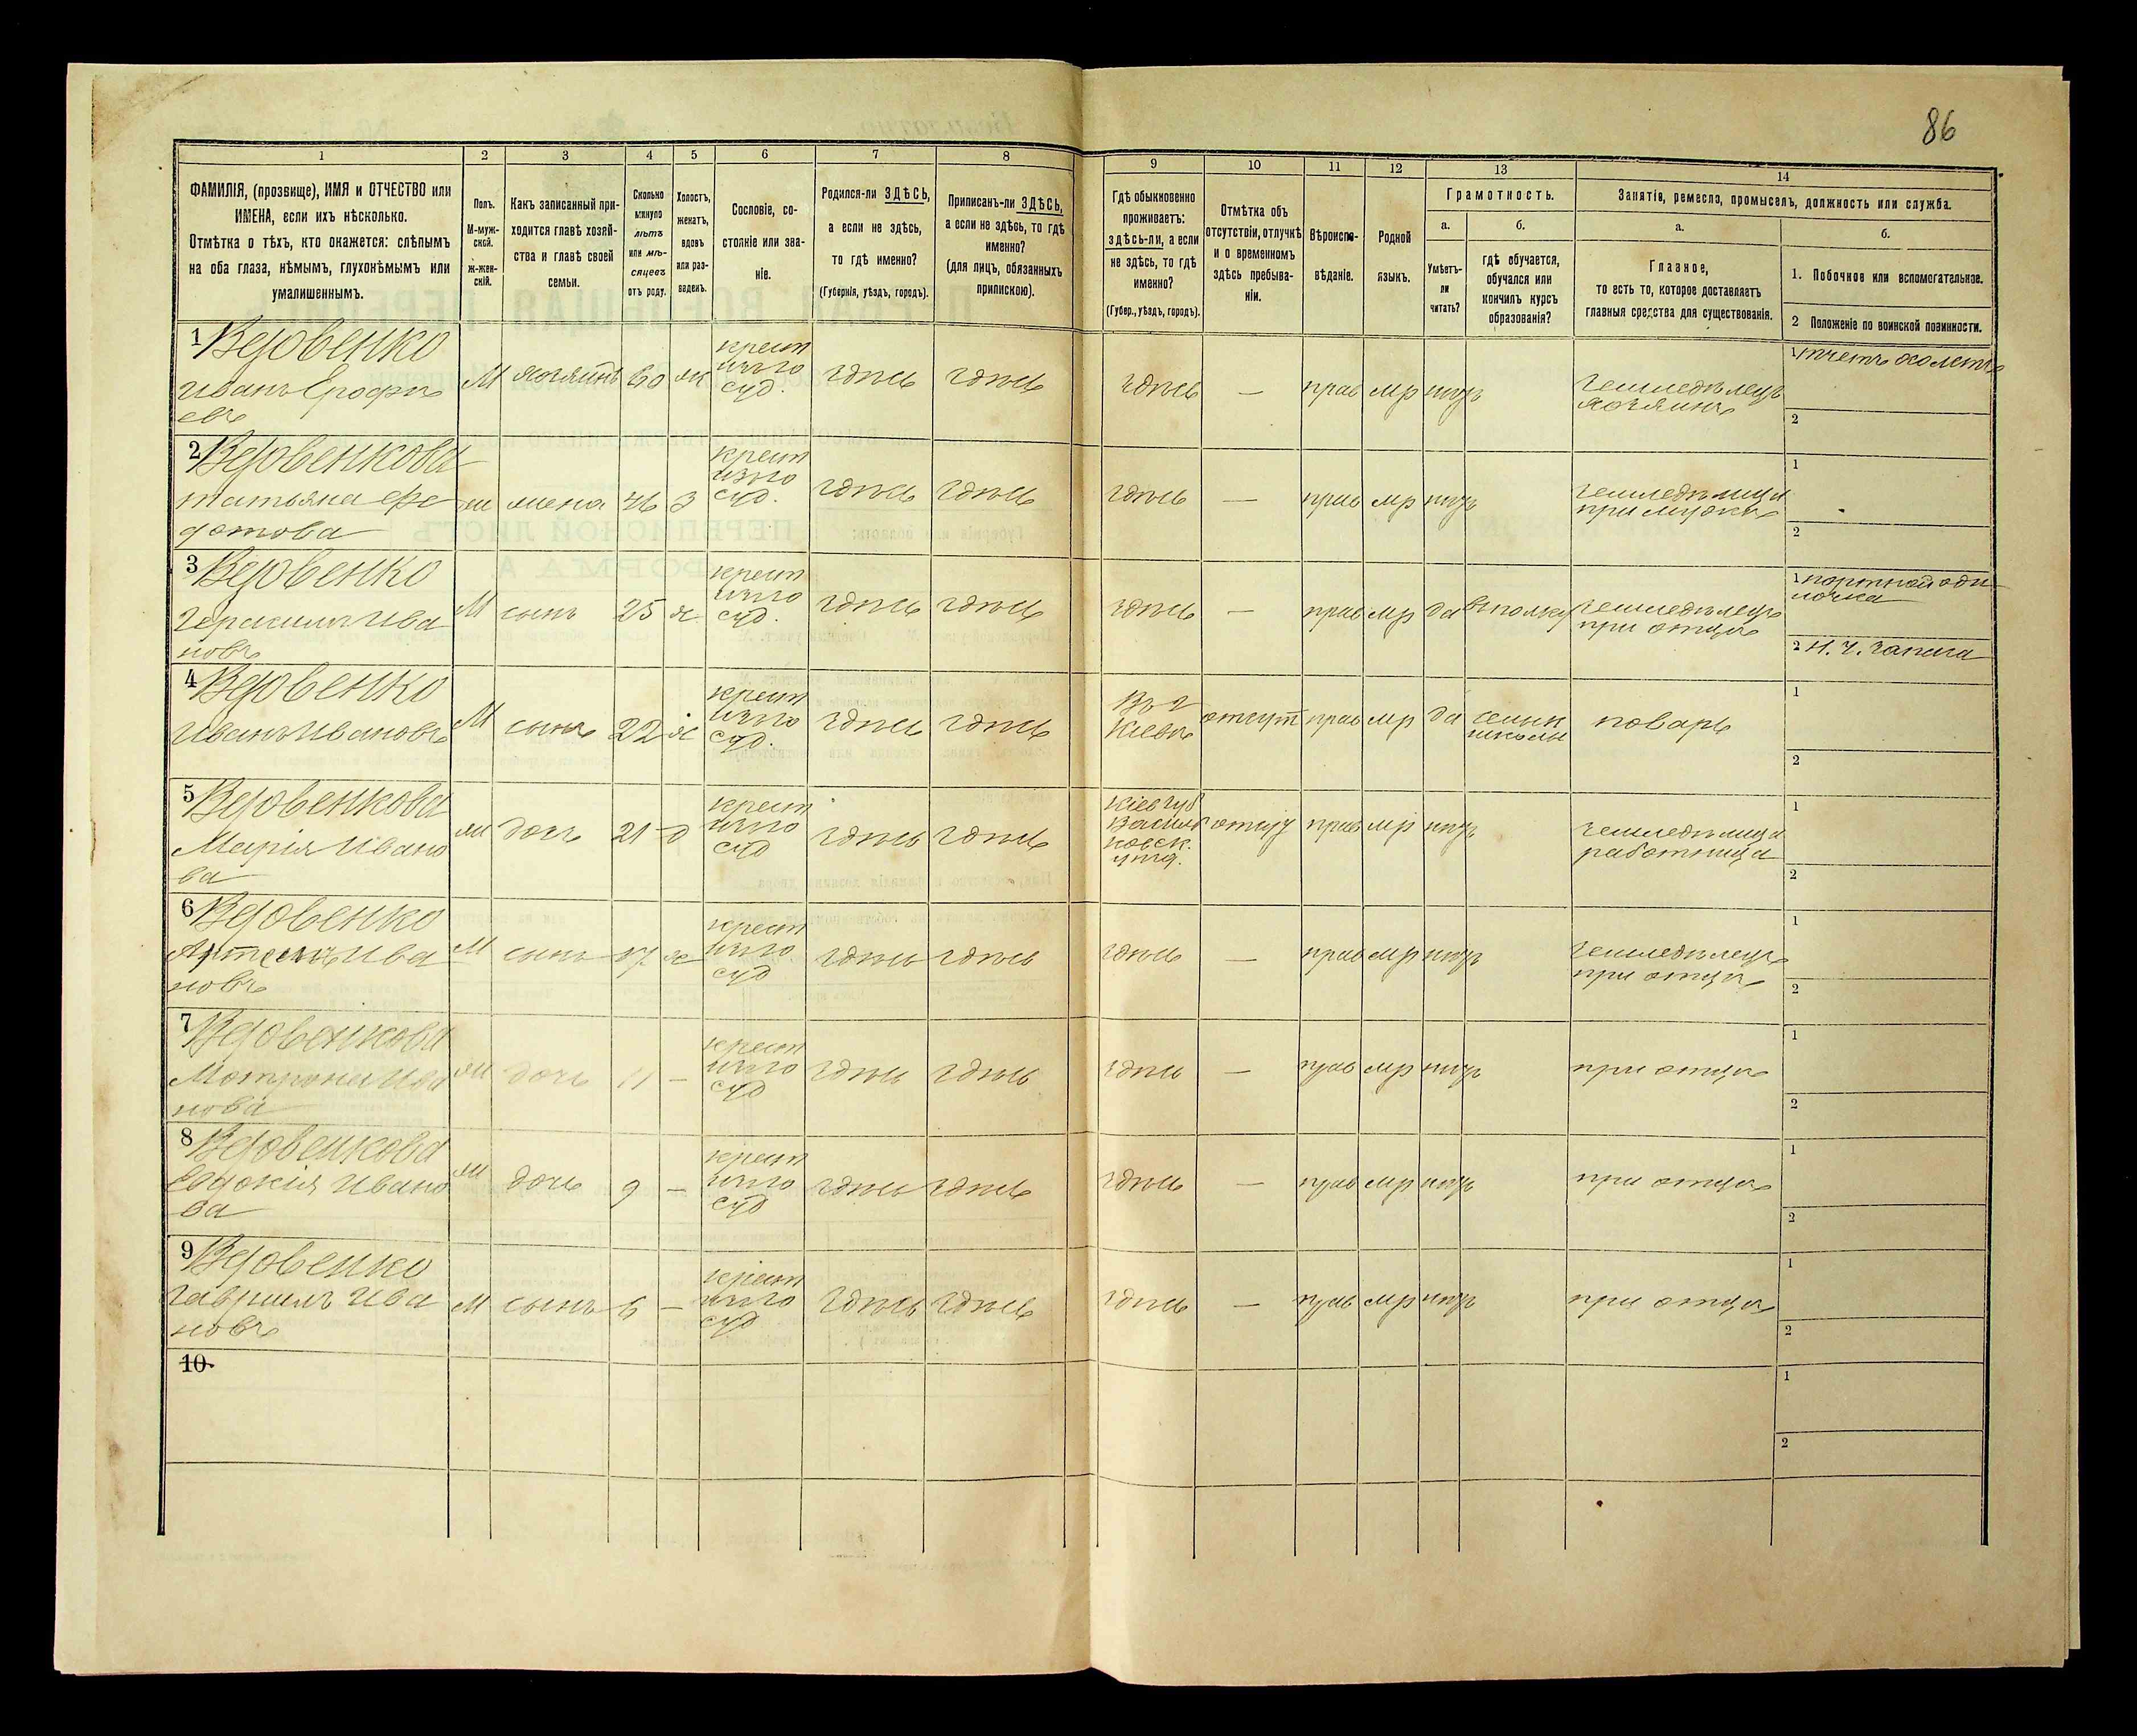 86
1
2
3
4
5
6
7
8
9
10
11
12
13
14
ФАМИЛІЯ, (прозвище), ИМЯ и ОТЧЕСТВО или
ИМЕНА, если ихъ нѣсколько.
Отмѣтка о тѣхъ, кто окажется: слѣпымъ
на оба глаза, нѣмымъ, глухонѣмымъ или
умалишеннымъ.
Полъ.
М-муж-
ской.
Ж-жен-
скій.
Какъ записанный при-
ходится главѣ хозяй-
ства и главѣ своей
семьи.
Сколько
минуло
лѣтъ
или мѣ-
сяцевъ
отъ роду.
Холостъ,
женатъ,
вдовъ
или раз-
веденъ.
Сословіе, со-
стояніе или зва-
ніе.
Родился-ли ЗДѢСЬ,
а если не здѣсь,
то гдѣ именно?
(Губернія, уѣздъ, городъ).
Приписанъ-ли ЗДѢСЬ,
а если не здѣсь, то гдѣ
именно?
(для лицъ, обязанныхъ
припискою).
Гдѣ обыкновенно
проживаетъ:
здѣсь-ли, а если
не здѣсь, то гдѣ
именно?
(Губер., уѣздъ, городъ).
Отмѣтка объ
отсутствіи, отлучкѣ
и о временномъ
здѣсь пребыва-
ніи.
Вѣроиспо-
вѣданіе.
Родной
языкъ.
Грамотность.
а.
Умѣетъ-
ли
читать?
б.
гдѣ обучается,
обучался или
кончилъ курсъ
образованія?
Занятіе, ремесло, промыселъ, должность или служба.
а.
Главное,
то есть то, которое доставляетъ
главныя средства для существованія.
б.
1. Побочное или вспомогательное.
2 Положеніе по воинской повинности.
1 Вдовенко
Иванъ Ерофѣ
евъ
М хозяинъ 60 ж
крест
изъ го
суд.
здѣсь здѣсь здѣсь — прав мр нѣтъ
земледѣлецъ
хозяинъ
1
2
2 Вдовенкова
Татьяна Фе
дотова
ж жена 46 З
крест
изъ го
суд.
здѣсь здѣсь здѣсь — прав мр нѣтъ
земледѣлица
при мужѣ
1
2
3 Вдовенко
Герасимъ Ива
новъ
М сынъ 25 х
крест
изъ го
суд.
здѣсь здѣсь здѣсь — прав мр да въ полку
земледѣлецъ
при отцѣ
1 портной оди
ночка
2 Н. Ч. запаса
4 Вдовенко
Иванъ Ивановъ
М сынъ 22 х
крест
изъ го
суд.
здѣсь здѣсь
Въ г
Кіевѣ
отсут прав мр да
сельск
школы
поваръ
1
2
5 Вдовенкова
Марія Ивано
ва
ж дочь 21 д
крест
изъ го
суд
здѣсь здѣсь
Кіев губ
Василь
ковск.
уѣзд.
отсут прав мр нѣтъ
земледѣлица
работница
1
2
6 Вдовенко
Артемъ Ива
новъ
М сынъ 17 х
крест
изъ го
суд
здѣсь здѣсь здѣсь — прав мр нѣтъ
земледѣлецъ
при отцѣ
1
2
7 Вдовенкова
Мотрона Ива
нова
ж дочь 11 —
крест
изъ го
суд
здѣсь здѣсь здѣсь — прав мр нѣтъ при отцѣ
1
2
8 Вдовенкова
Евдокія Ивано
ва
ж дочь 9 —
крест
изъ го
суд
здѣсь здѣсь здѣсь — прав мр нѣтъ при отцѣ
1
2
9 Вдовенко
Гавріилъ Ива
новъ
М сынъ 6 —
крест
изъ го
суд
здѣсь здѣсь здѣсь — прав мр нѣтъ при отцѣ
1
2
10
1
2